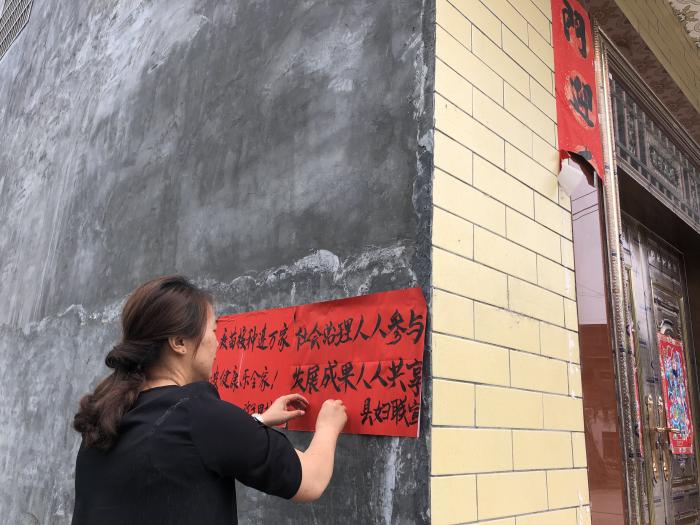 門迎
疫苗接种进万家
健康乐全家!
社会治理人人参与
发展成果人人共享
县妇联宣